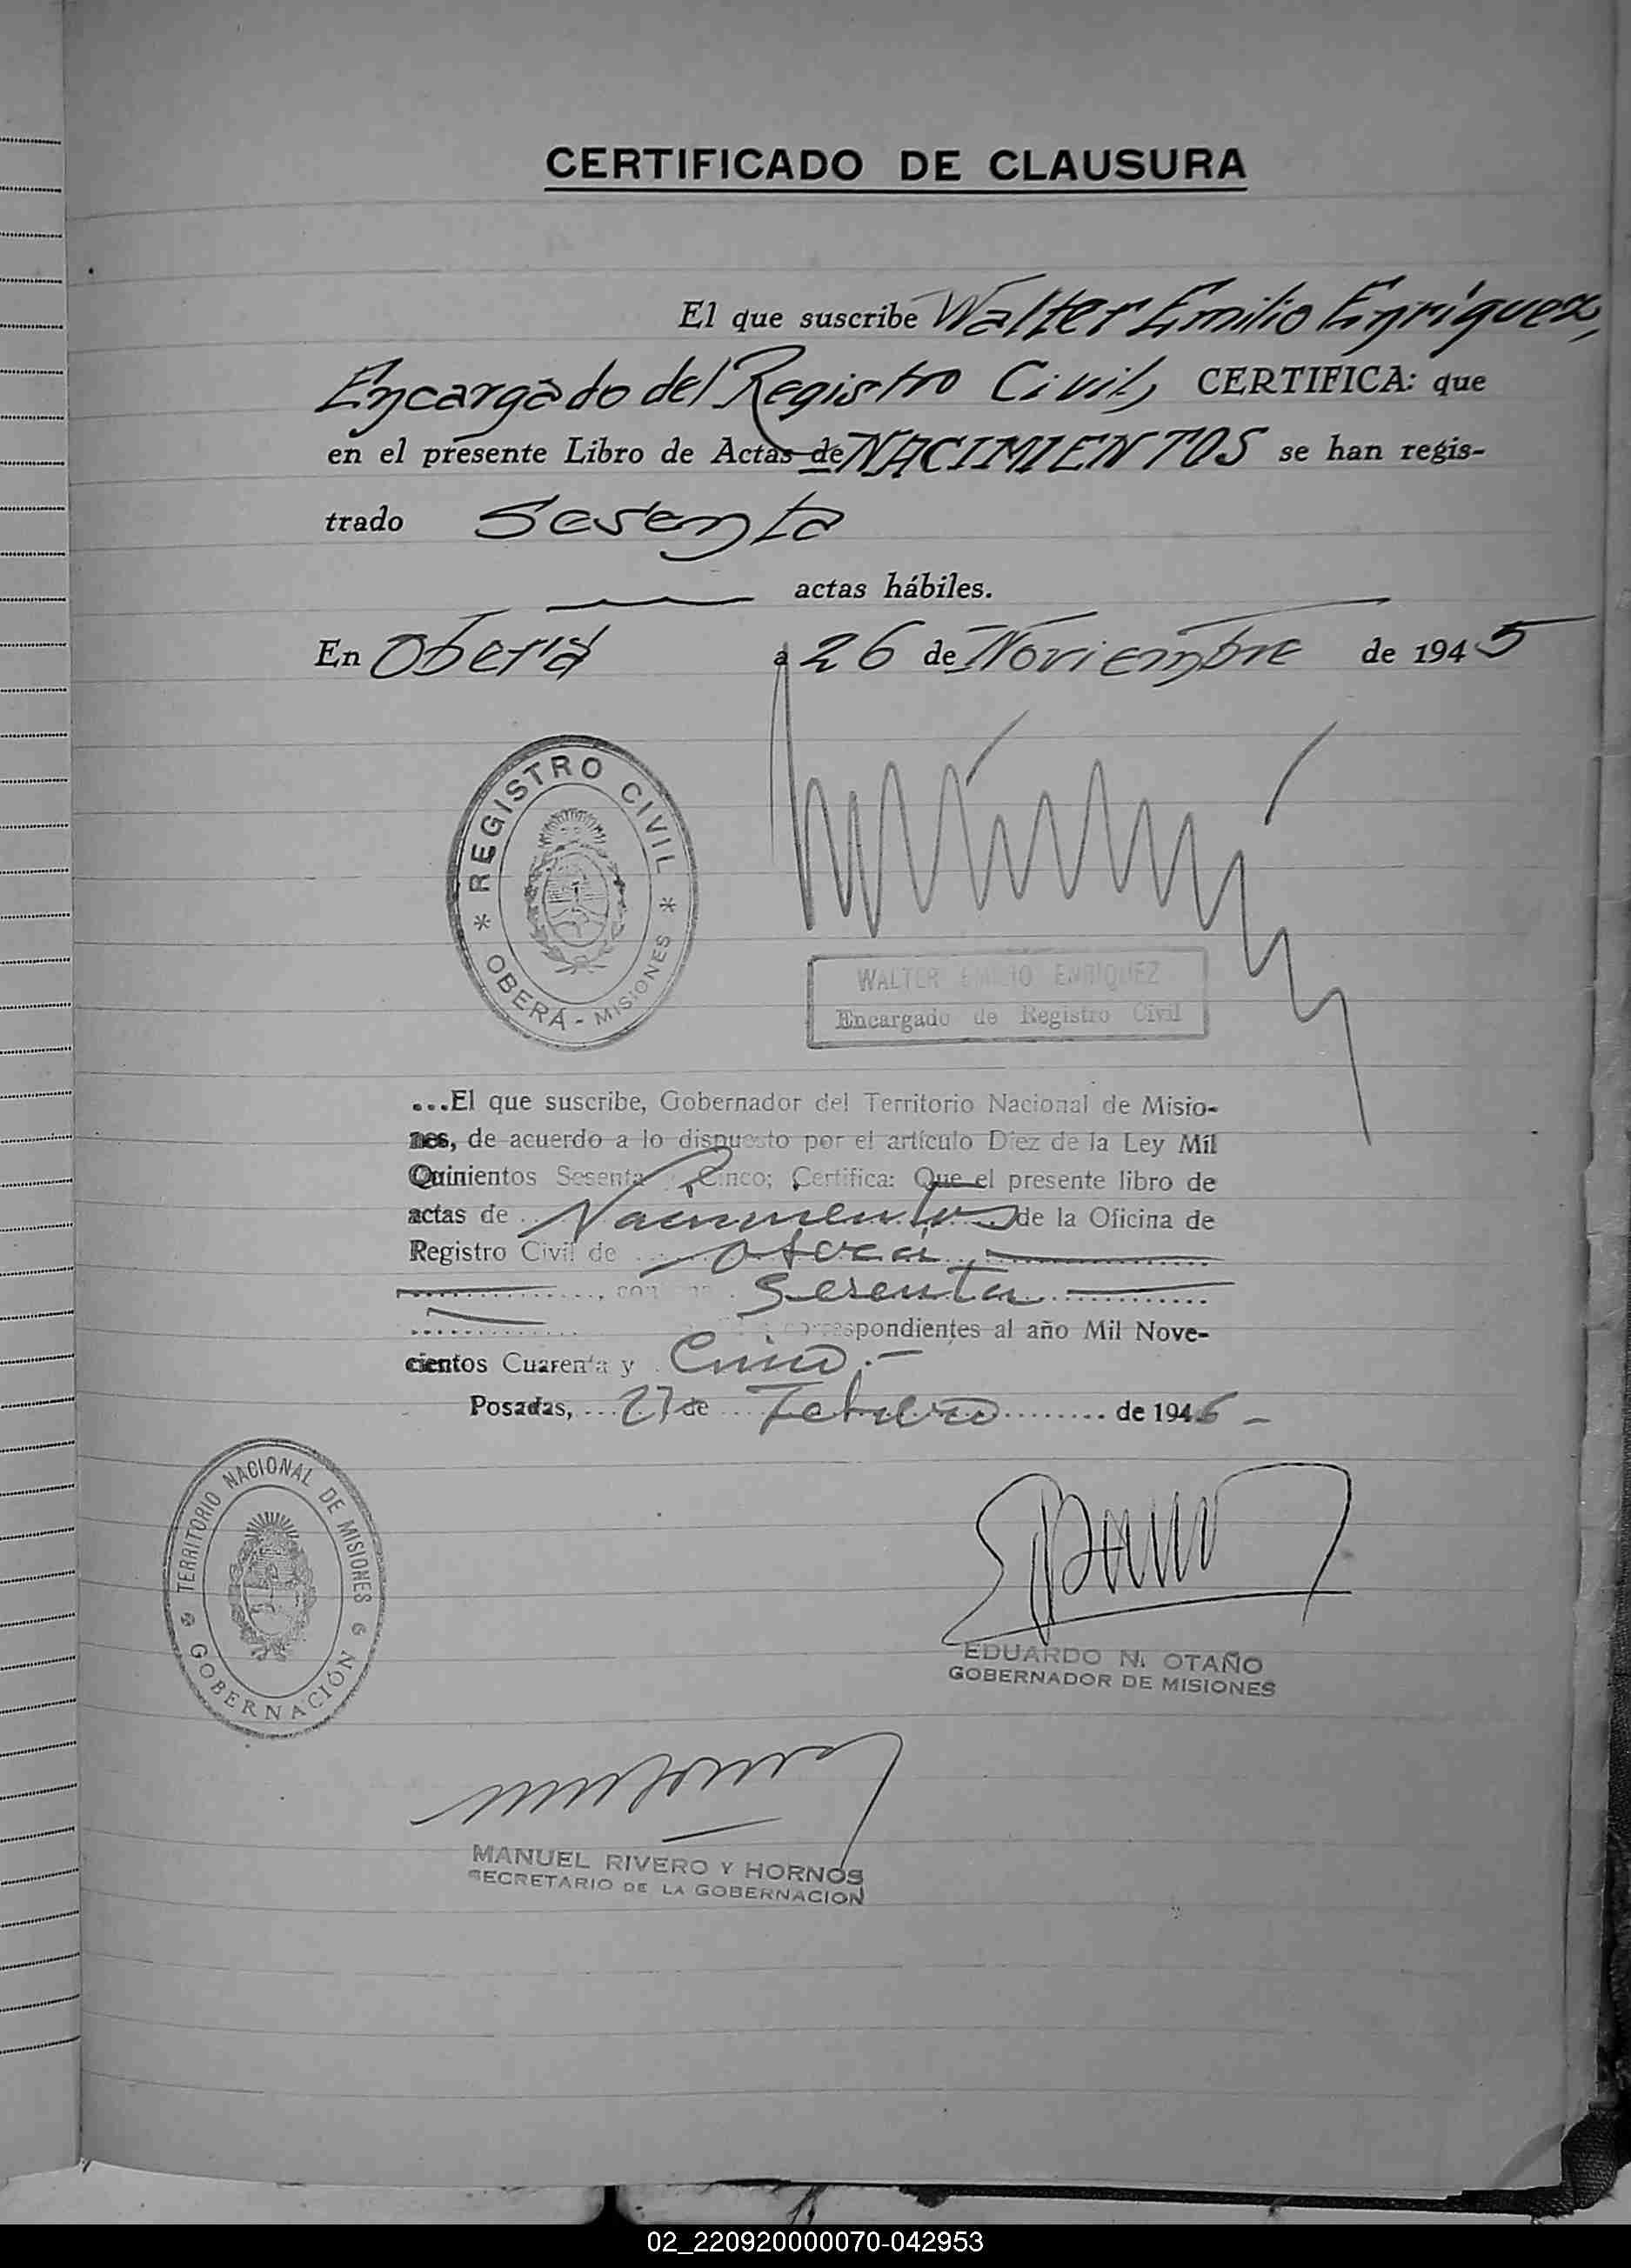 CERTIFICADO DE CLAUSURA
El que suscribe Walter Emilio Enriquez,
Encargado del Registro Civil, CERTIFICA: que
en el presente Libro de Actas de NACIMIENTOS se han regis-
trado Sesenta
actas hábiles.
En Oberá a 26 de Noviembre de 1945
REGISTRO CIVIL
OBERÁ - MISIONES
WALTER EMILIO ENRIQUEZ
Encargado de Registro Civil
...El que suscribe, Gobernador del Territorio Nacional de Misio-
nes, de acuerdo a lo dispuesto por el artículo Diez de la Ley Mil
Quinientos Sesenta y Cinco; Certifica: Que el presente libro de
actas de Nacimientos de la Oficina de
Registro Civil de Oberá
Sesenta
correspondientes al año Mil Nove-
cientos Cuarenta y Cinco.-
Posadas, 27 de Febrero de 1946 -
TERRITORIO NACIONAL DE MISIONES
GOBERNACIÓN
EDUARDO N. OTAÑO
GOBERNADOR DE MISIONES
MANUEL RIVERO Y HORNOS
SECRETARIO DE LA GOBERNACION
02_220920000070-042953